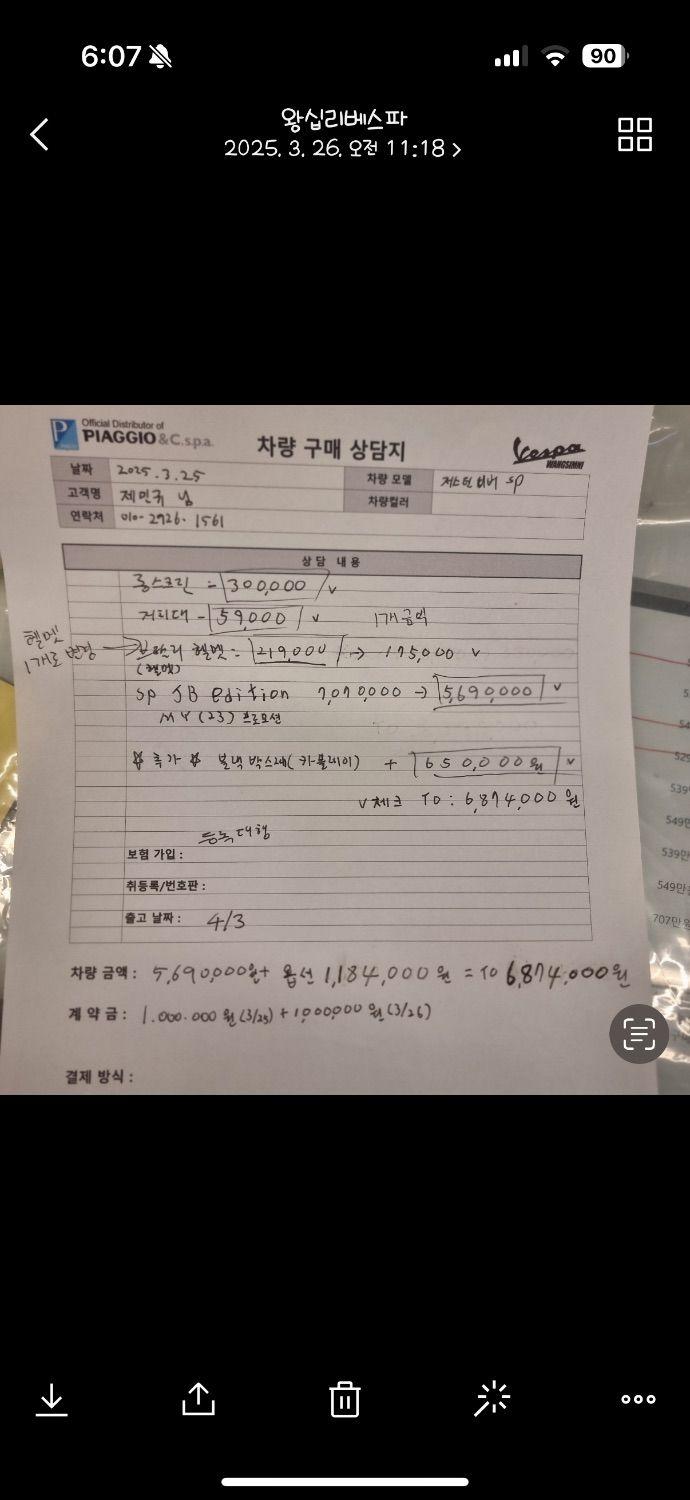 6:07
90
왕십리베스파
2025. 3. 26. 오전 11:18 >
Official Distributor of
PIAGGIO & C.s.p.a.
차량 구매 상담지
Vespa
WANGSIMNI
날짜 2025.3.25 차량 모델 저스틴비버 SP
고객명 제민규 님 차량컬러
연락처 010-2926-1561
상담 내용
롱스크린 = 300,000 v
거치대 - 59,000 v 1개 금액
헬멧 1개로 변경 → 헬멧 = 219,000 → 175,000 v
(헬멧)
SP JB edition 7,070,000 → 5,690,000 v
MY (23) 프로모션
☆ 추가 ☆ 박스세( ) + 650,000원 v
v 체크 TO : 6,874,000 원
등록대행
보험 가입 :
취등록/번호판 :
출고 날짜 : 4/3
차량 금액 : 5,690,000원 + 옵션 1,184,000 원 = TO 6,874,000원
계 약 금 : 1.000.000 원 (3/25) + 1,000,000 원 (3/26)
결제 방식 :
529
539
549만
539만
549만
707만원